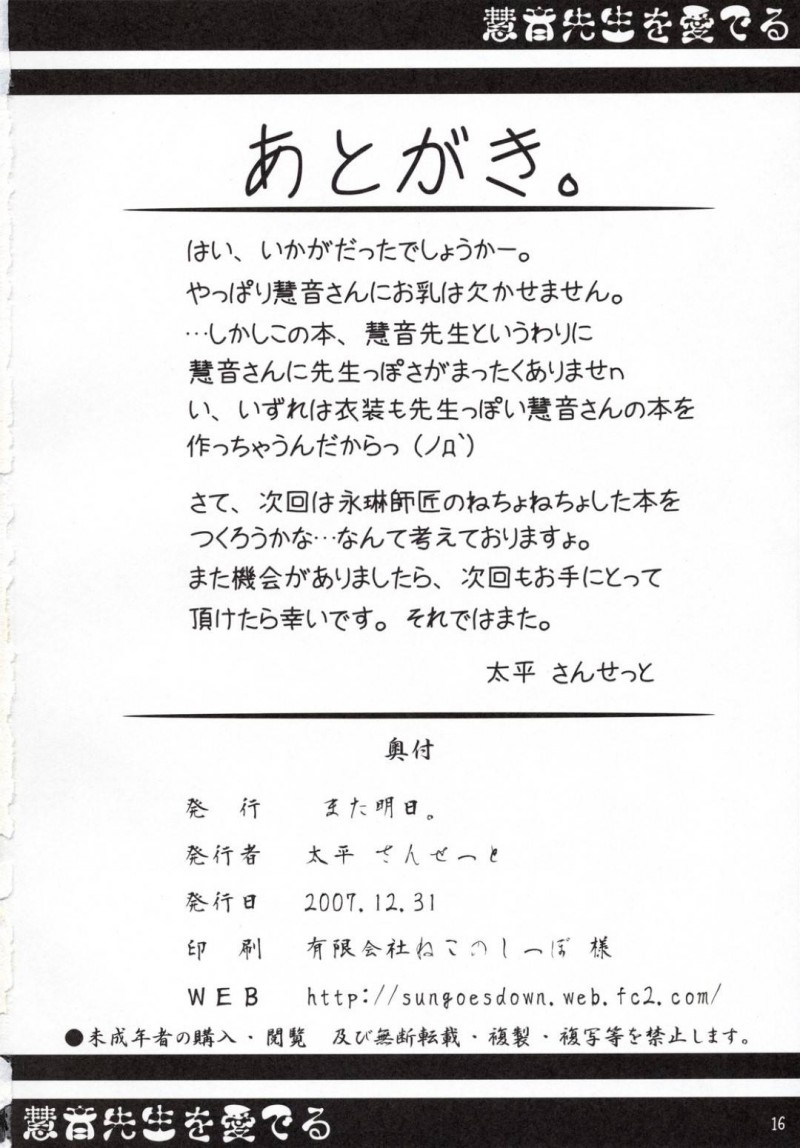 慧音先生を愛でる
あとがき。
はい、いかがだったでしょうかー。
やっぱり慧音さんにお乳は欠かせません。
…しかしこの本、慧音先生というわりに
慧音さんに先生っぽさがまったくありませn
い、いずれは衣装も先生っぽい慧音さんの本を
作っちゃうんだからっ(ノД`)
さて、次回は永琳師匠のねちょねちょした本を
つくろうかな…なんて考えておりますょ。
また機会がありましたら、次回もお手にとって
頂けたら幸いです。それではまた。
太平 さんせっと
奥付
発 行 また明日。
発行者 太平 さんせっと
発行日 2007.12.31
印 刷 有限会社ねこのしっぽ 様
WEB http://sungoesdown.web.fc2.com/
●未成年者の購入・閲覧 及び無断転載・複製・複写等を禁止します。
慧音先生を愛でる
16